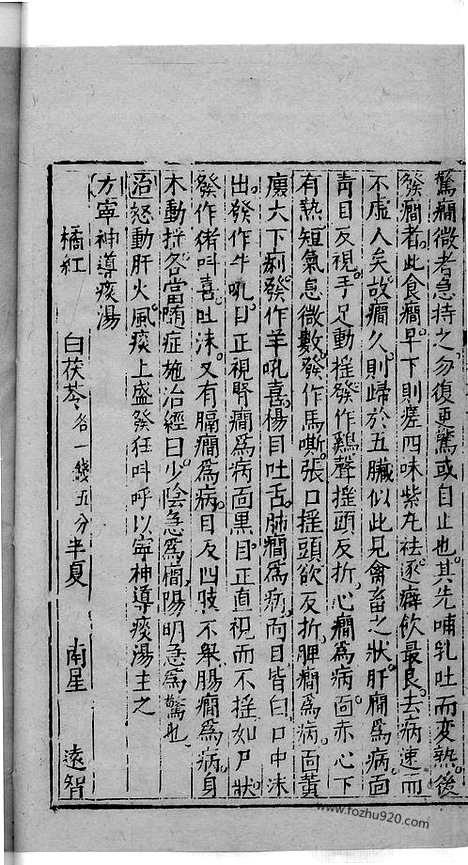 驚癇微者急持之勿復更驚或自止也其先哺乳吐而変熱後
發癇者此食癇早下則瘥四味紫丸袪逐癖飲最良去病速而
不虛人矣故癇久則歸於五臟似此見禽畜之狀肝癇為病面
青目反視手足動摇發作鷄聲摇頭反折心癇為病面赤心下
有熱短氣息微數發作馬嘶張口摇頭欲反折脾癇為病面黃
腹大下痢發作羊吼喜楊目吐舌肺癇為病面目皆白口中沫
出發作牛吼目正視腎癇為病面黑目正直視而不摇如尸狀
發作猪呌喜吐沫又有膈癇為病目反四肢不舉腸癇為病身
不動揺各當随症施治經曰少陰急為癇陽明急為驚也
治怒動肝火風痰上盛發狂呌呼以寧神導痰湯主之
方寧神導痰湯
橘紅 白茯苓各一錢五分 半夏 南星 遠智
www.fozhu920.com